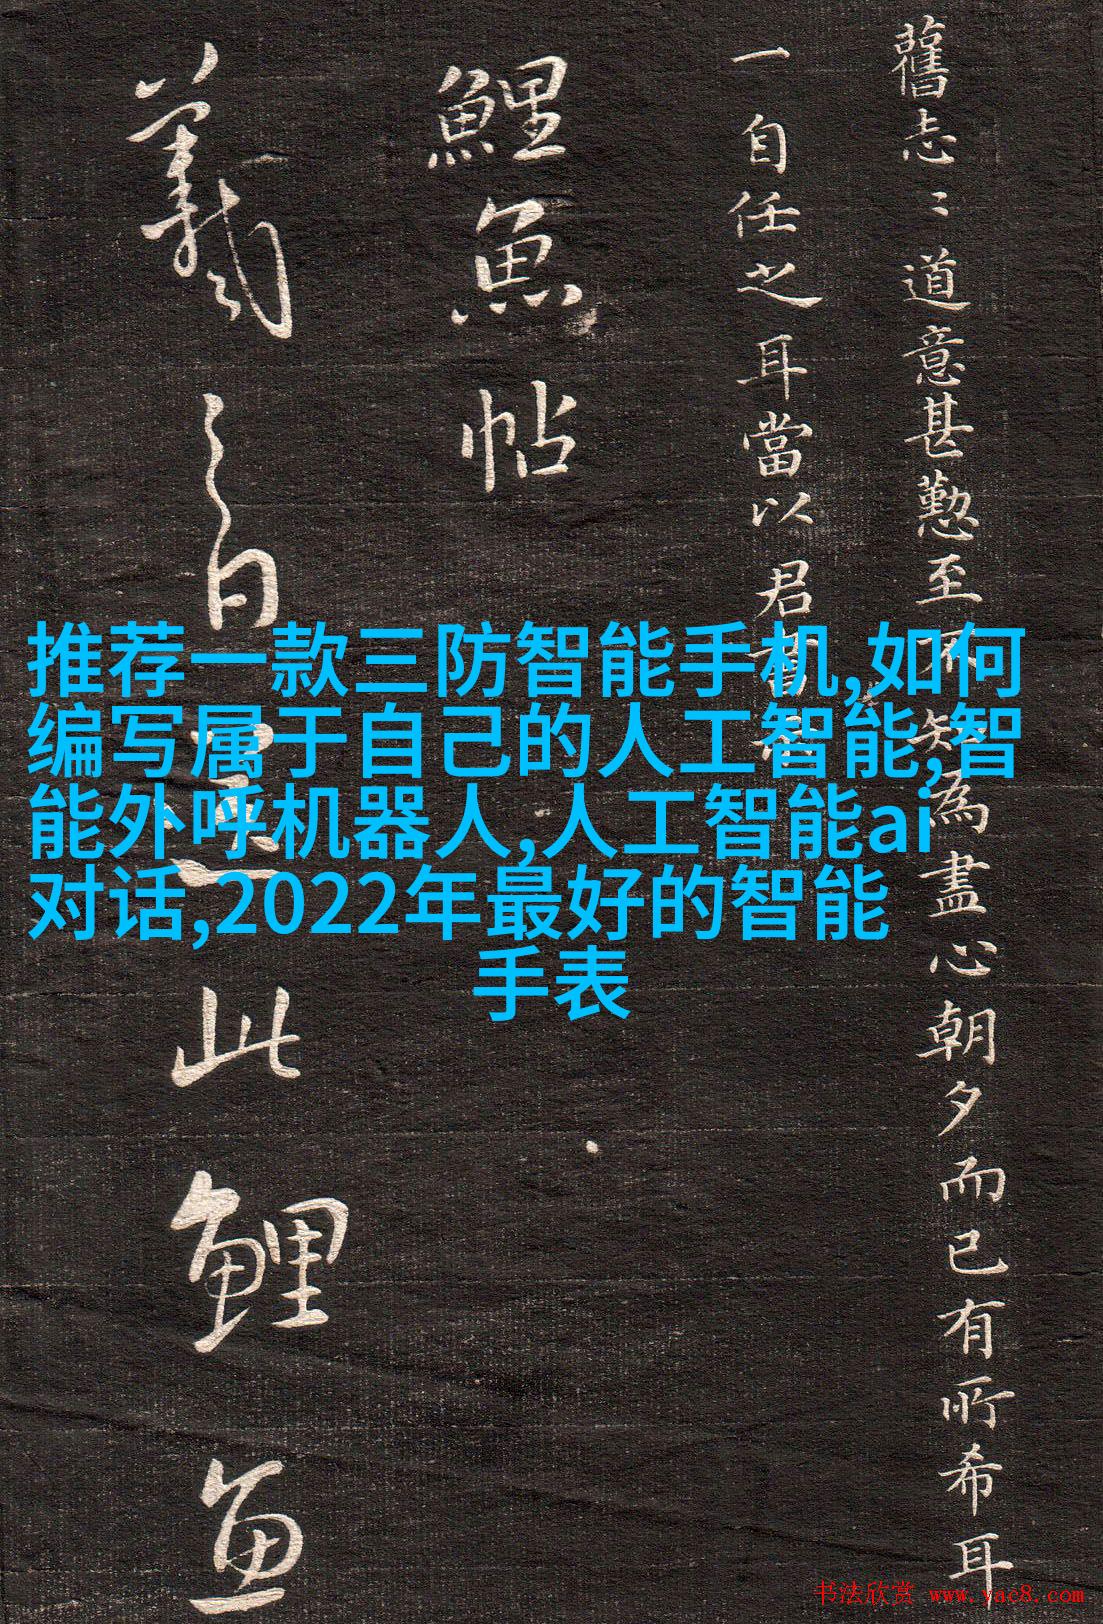 舊志〻道意甚懃至不知為盡心朝夕而已有所希耳
一自任之耳當以君書
鯉魚帖
羲之白此鯉魚
推荐一款三防智能手机,如何
编写属于自己的人工智能,智
能外呼机器人,人工智能ai
对话,2022年最好的智能
手表
书法欣赏 www.yac8.com